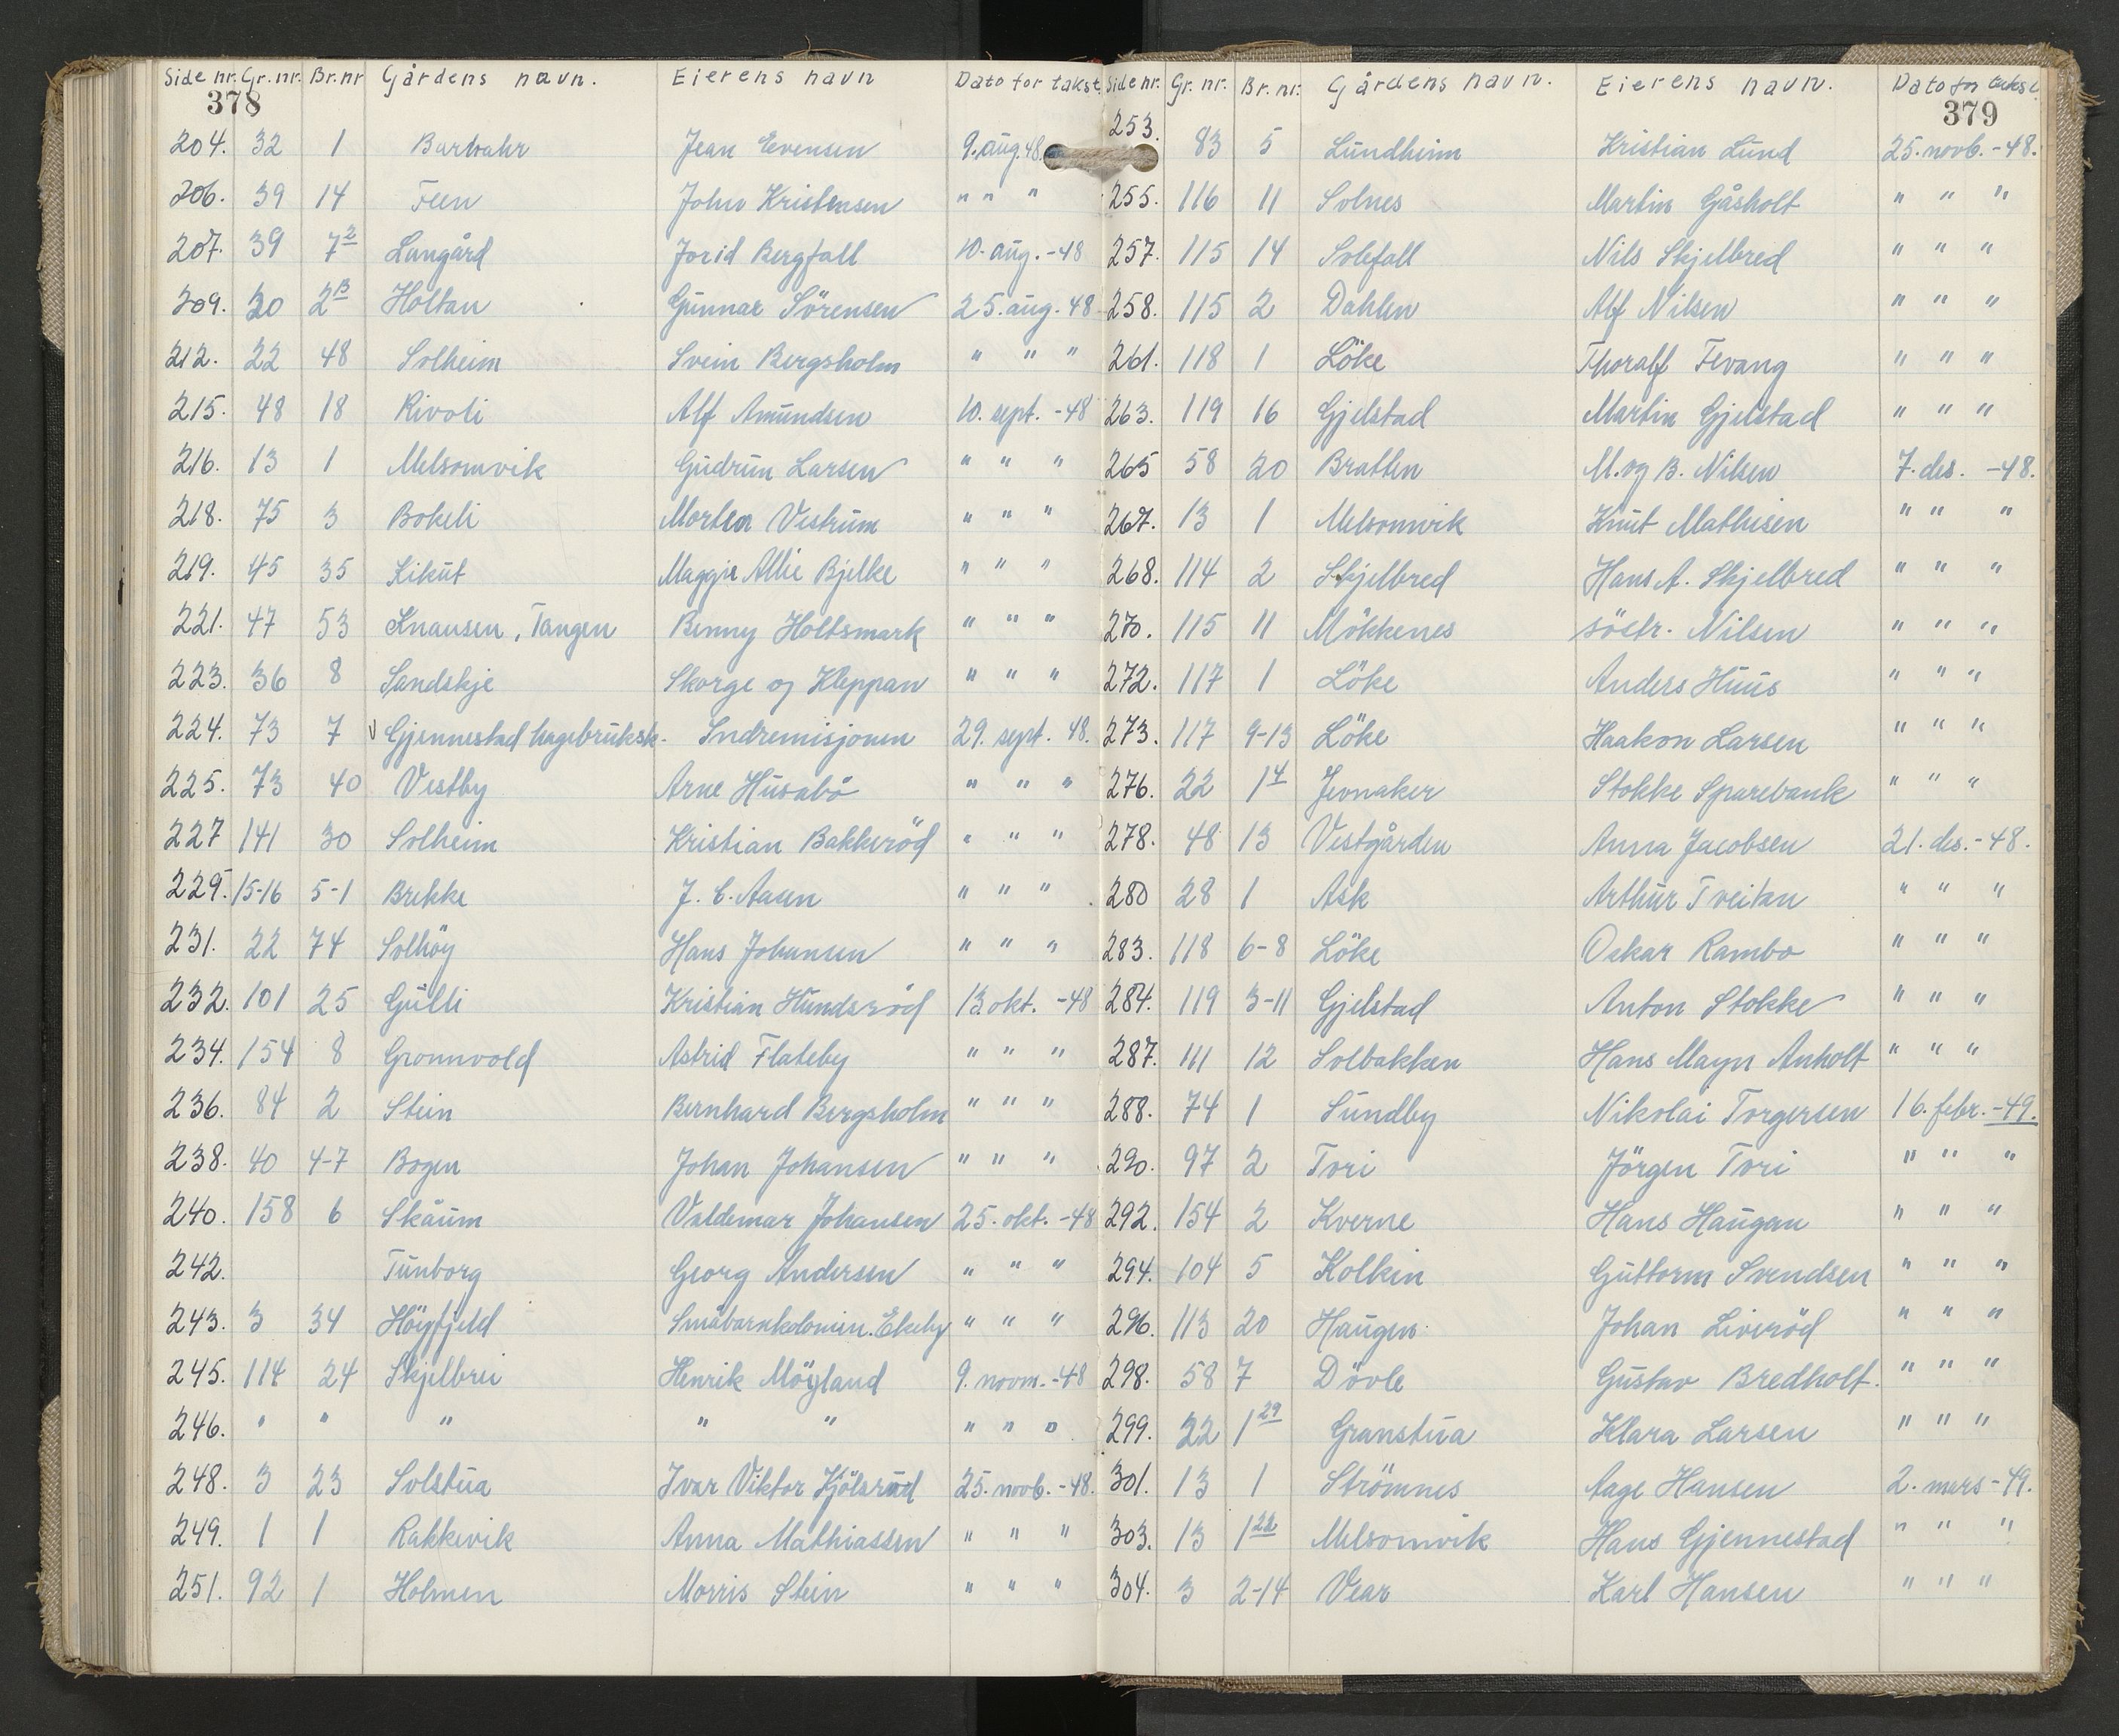 Side nr. Gr. nr. Br. nr Gårdens navn. Eierens navn Dato for takst.
378
204. 32 1 Barkahr Jean Evensen 9. aug. 48.
206. 39 14 Feen John Kristensen " " "
207. 39 7 2 Langård Jorid Bergfall 10. aug. -48
209. 20 2 B Holtan Gunnar Sörensen 25. aug. 48
212. 22 48 Solheim Svein Bergsholm " " "
215. 48 18 Rivoli Alf Amundsen 10. sept. -48
216. 13 1 Melsomvik Gudrun Larsen " " "
218. 75 3 Bokeli Morten Vestrum " " "
219. 45 35 Kikut Maggie Allie Bjelke " " "
221. 47 53 Knausen, Tangen Benny Holtsmark " " "
223. 36 8 Sandskje Skorge og Kleppan " " "
224. 73 7 Gjennestad hagebruksk. Indremisjonen 29. sept. 48.
225. 73 40 Vestby Arne Husabö " " "
227 141 30 Solheim Kristian Bakkeröd " " "
229. 15-16 5-1 Brekke J. C. Aasen " " "
231. 22 74 Solhöy Hans Johansen " " "
232. 101 25 Gulli Kristian Hundsröd 13. okt. -48
234. 154 8 Gronnvold Astrid Flateby " " "
236. 84 2 Stein Bernhard Bergsholm " " "
238. 40 4-7 Bogen Johan Johansen " " "
240. 158 6 Skaum Valdemar Johansen 25. okt. -48
242. Tunborg Georg Andersen " " "
243. 3 34 Höyfjeld Småbarnkolonien. Ekeby " " "
245. 114 24 Skjelbrei Henrik Möyland 9. novm. -48
246. " " " " " " " "
248. 3 23 Solstua Ivar Viktor Kjölsrud 25. novb. -48.
249. 1 1 Rakkevik Anna Mathiassen " " "
251. 92 1 Holmen Morris Stein " " "
Side nr. Gr. nr. Br. nr. Gårdens navn. Eierens navn. Dato for takst.
379
253. 83 5 Lundheim Kristian Lund 25. novb. -48.
255. 116 11 Solnes Martin Gåsholt " " "
257. 115 14 Solefall Nils Skjelbred " " "
258. 115 2 Dahlen Alf Nilsen " " "
261. 118 1 Löke Thoralf Fevang " " "
263. 119 16 Gjelstad Martin Gjelstad " " "
265 58 20 Bratten M. og B. Nilsen 7. des. -48.
267. 13 1 Melsomvik Knut Mathisen " " "
268. 114 2 Skjelbred Hans A. Skjelbred " " "
270. 115 11 Mökkenes söstr. Nilsen " " "
272. 117 1 Löke Anders Huus " " "
273. 117 9-13 Löke Haakon Larsen " " "
276. 22 1 4 Jevnaker Stokke Sparebank " " "
278. 48 13 Vestgården Anna Jacobsen 21. des. -48.
280 28 1 Ask Arthur Tveitan " " "
283. 118 6-8 Löke Oskar Rambo " " "
284. 119 3-11 Gjelstad Anton Stokke " " "
287. 111 12 Solbakken Hans Mayn Anholt " " "
288. 74 1 Sundby Nikolai Torgersen 16. febr. -49.
290. 97 2 Tori Jörgen Tori " " "
292. 154 2 Kverne Hans Haugan " " "
294. 104 5 Kolkin Guttorm Svendsen " " "
296. 113 20 Haugen Johan Liveröd " " "
298. 58 7 Dövle Gustav Bredholt. " " "
299. 22 1 29 Granstua Klara Larsen " " "
301. 13 1 Strömnes Aage Hansen 2. mars -49.
303. 13 1 22 Melsomvik Hans Gjennestad " " "
304. 3 2-14 Vear Karl Hansen " " "